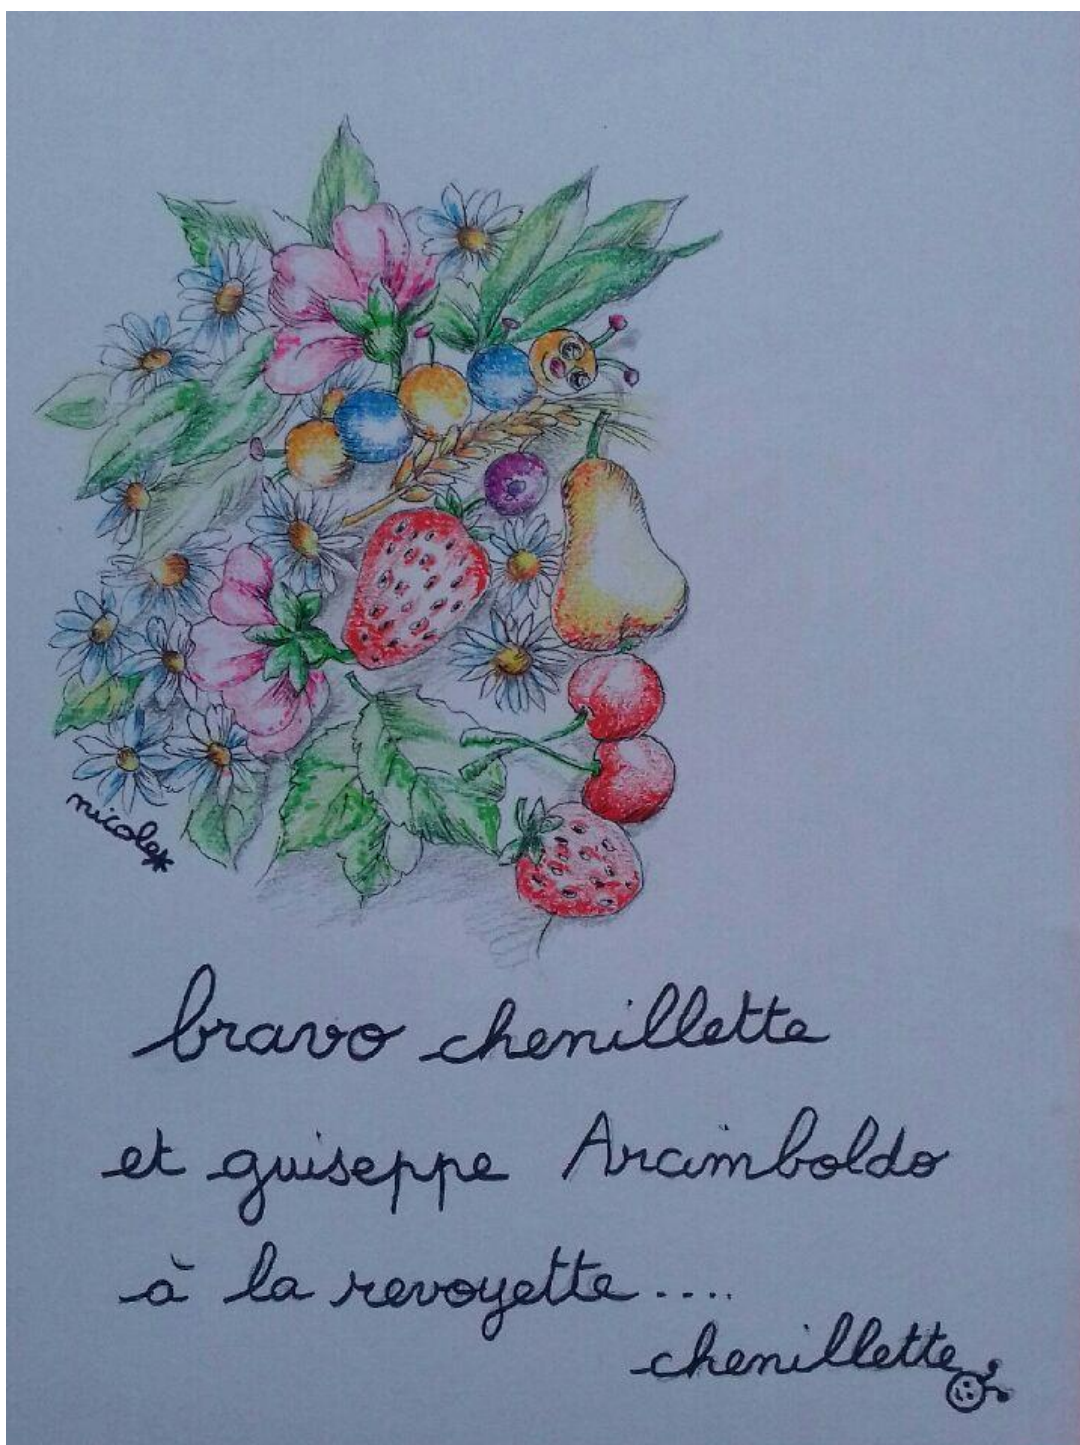 nicole*
bravo chenillette
et guiseppe Arcimboldo
à la revoyette....
chenillette